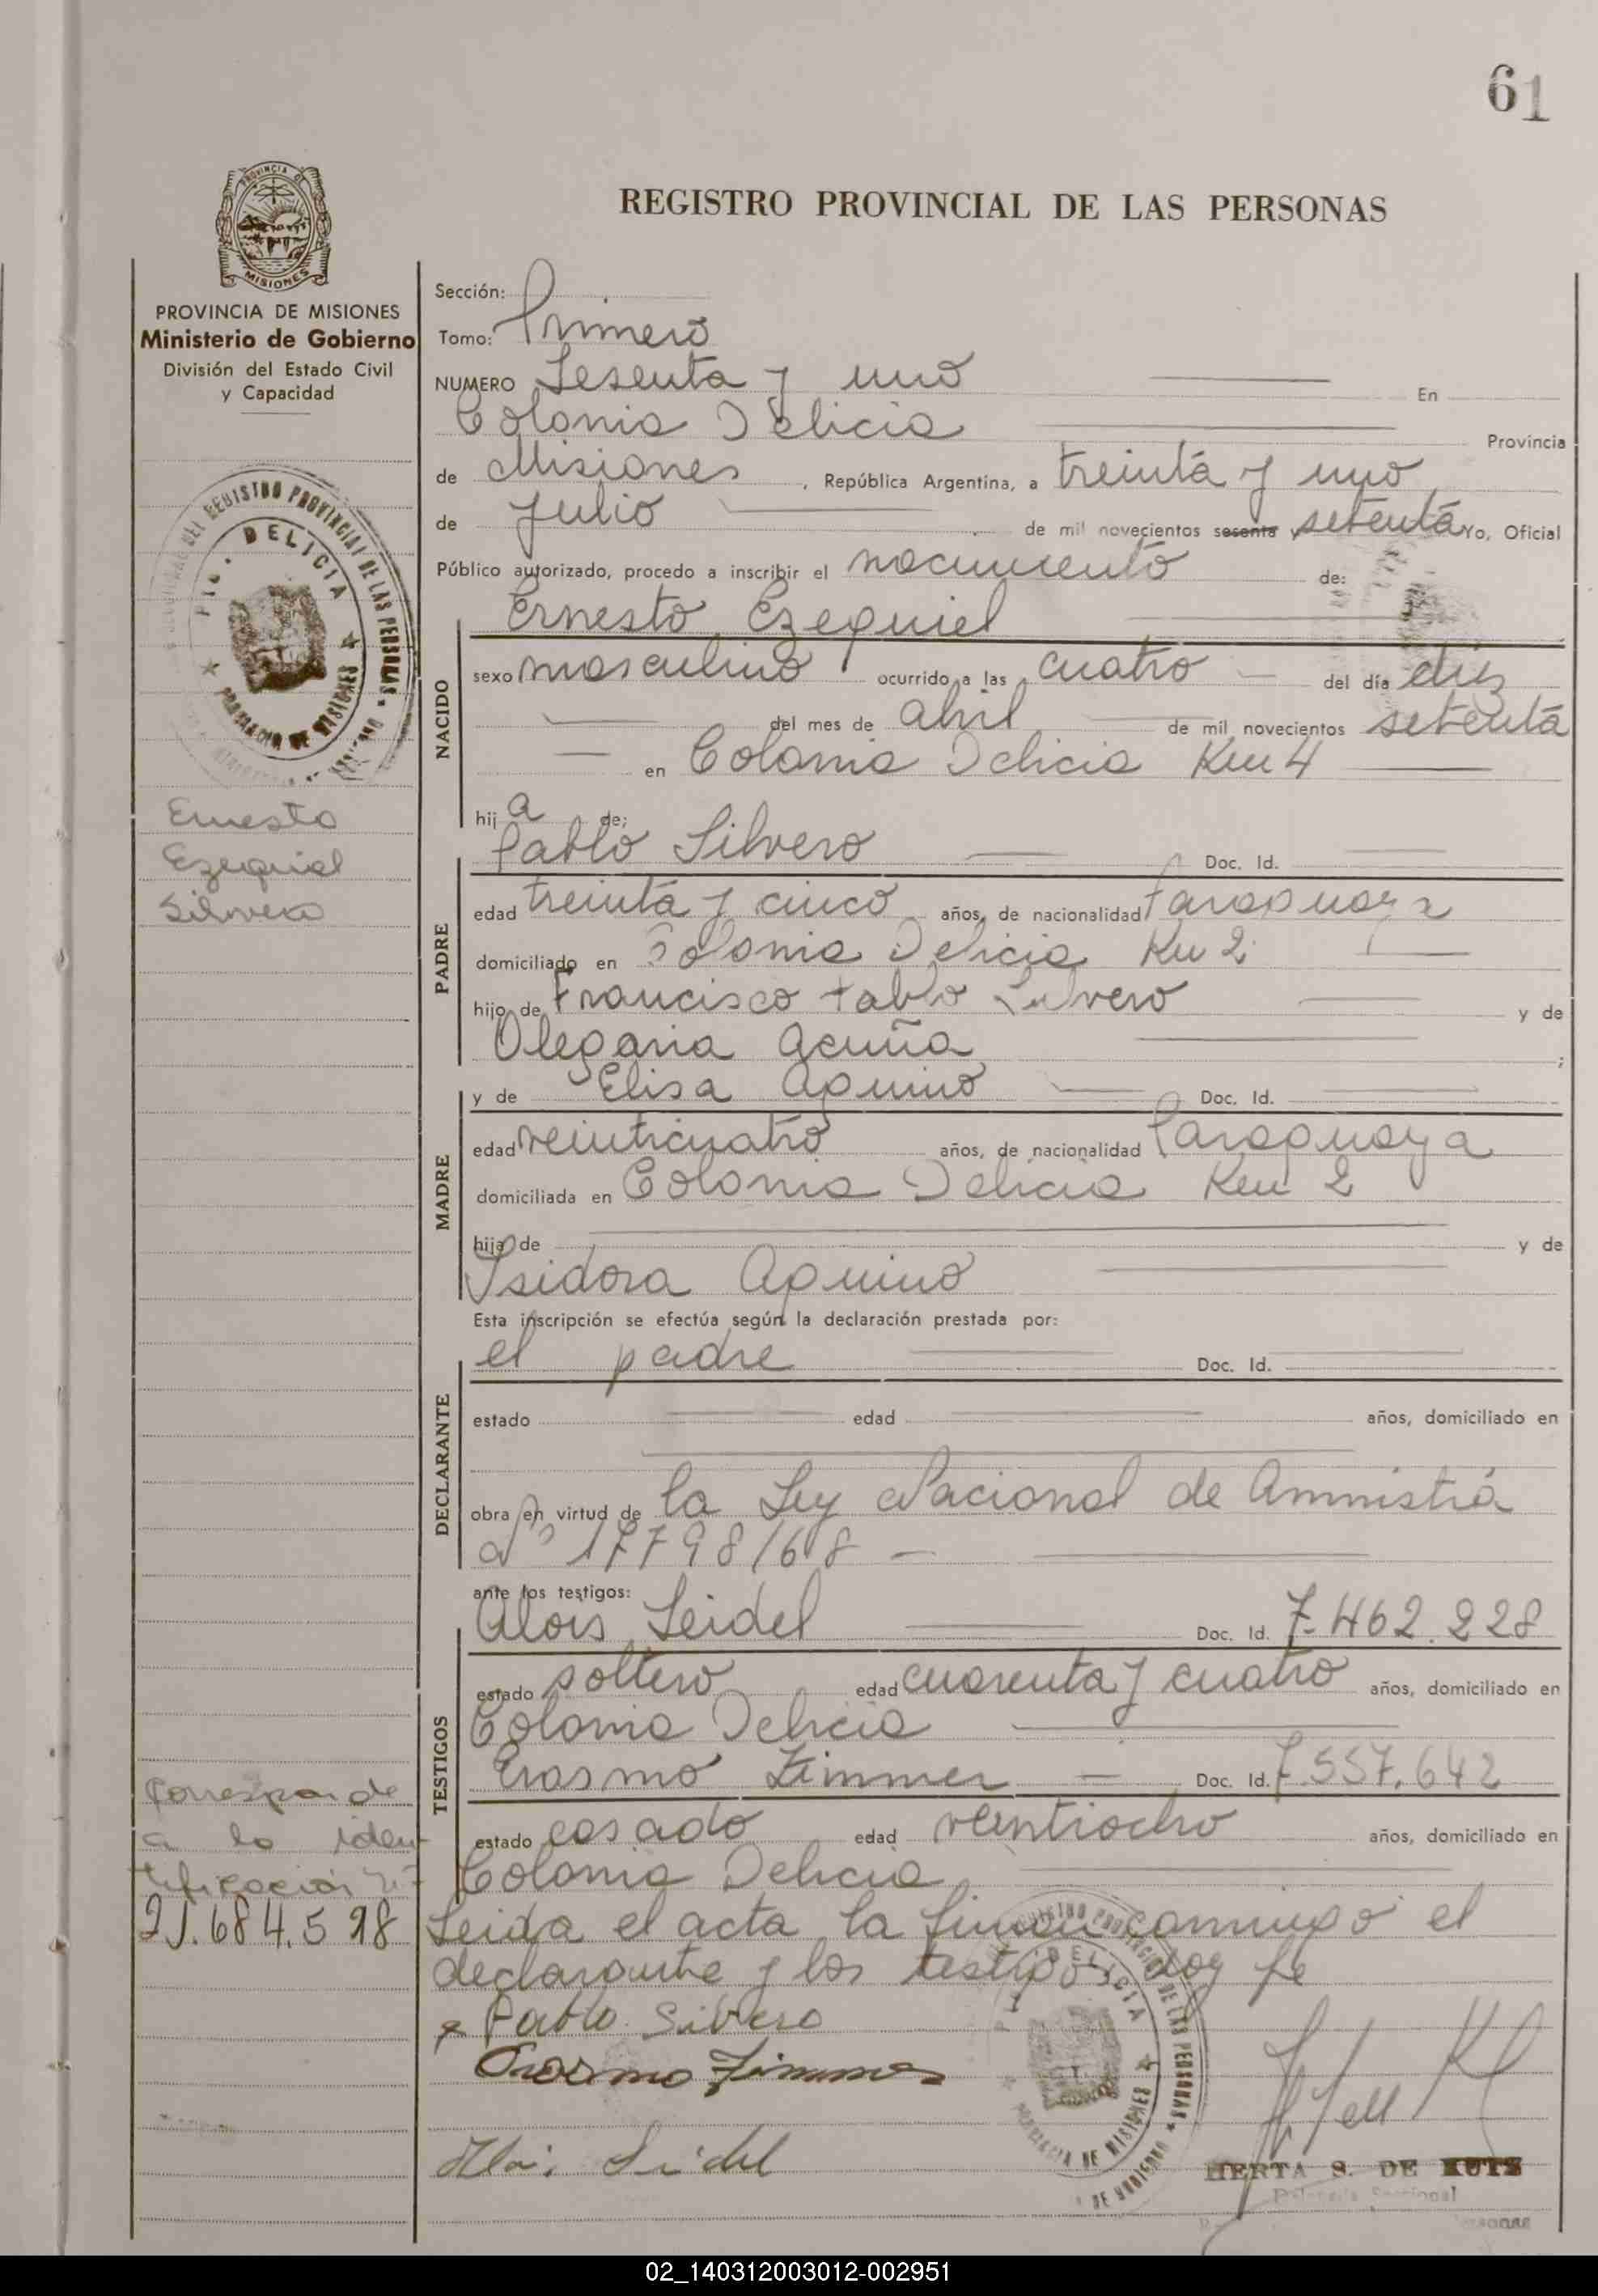 61
PROVINCIA DE
MISIONES
REGISTRO PROVINCIAL DE LAS PERSONAS
PROVINCIA DE MISIONES
Ministerio de Gobierno
División del Estado Civil
y Capacidad
Sección:
Tomo: Primero
NUMERO Sesenta y uno En
Colonia Delicia Provincia
de Misiones, República Argentina, a treinta y uno
de Julio de mil novecientos sesenta y setenta Yo, Oficial
Público autorizado, procedo a inscribir el nacimiento de:
Ernesto Ezequiel
NACIDO
sexo masculino ocurrido a las cuatro del día diez
del mes de abril de mil novecientos setenta
en Colonia Delicia Km 4
hij a de:
DEL REGISTRO PROVINCIAL DE LAS PERSONAS
DELICIA
PROVINCIA DE MISIONES
Ernesto
Ezequiel
Silvero
Pablo Silvero Doc. Id.
PADRE
edad treinta y cinco años, de nacionalidad Paraguaya
domiciliado en Colonia Delicia Km 2
hijo de Francisco Pablo Silvero y de
Olegaria Acuña ;
y de Elisa Aquino Doc. Id.
MADRE
edad veinticuatro años, de nacionalidad Paraguaya
domiciliada en Colonia Delicia Km 2
hija de y de
Isidora Aquino
Esta inscripción se efectúa según la declaración prestada por:
el padre Doc. Id.
DECLARANTE
estado edad años, domiciliado en
obra en virtud de la Ley Nacional de Amnistía
Nº 17798/68 -
ante los testigos:
Alois Seidel Doc. Id. 7.462.228
TESTIGOS
estado soltero edad cuarenta y cuatro años, domiciliado en
Colonia Delicia
Erasmo Zimmer Doc. Id. 7.557.642
estado casado edad veintiocho años, domiciliado en
Colonia Delicia
Corresponde
a la iden
tificación Nº
21.684.598
Leida el acta la firman conmigo el
declarante y los testigos doy fe
x Pablo Silvero
Erasmo Zimmer
Alois Seidel
DELICIA
PROVINCIA DE MISIONES
HERTA S. DE KUTZ
02_140312003012-002951